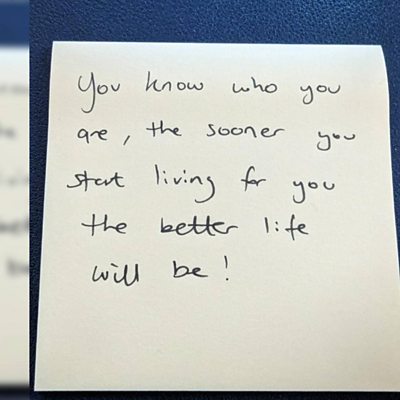 You know who you
are, the sooner you
start living for you
the better life
will be!